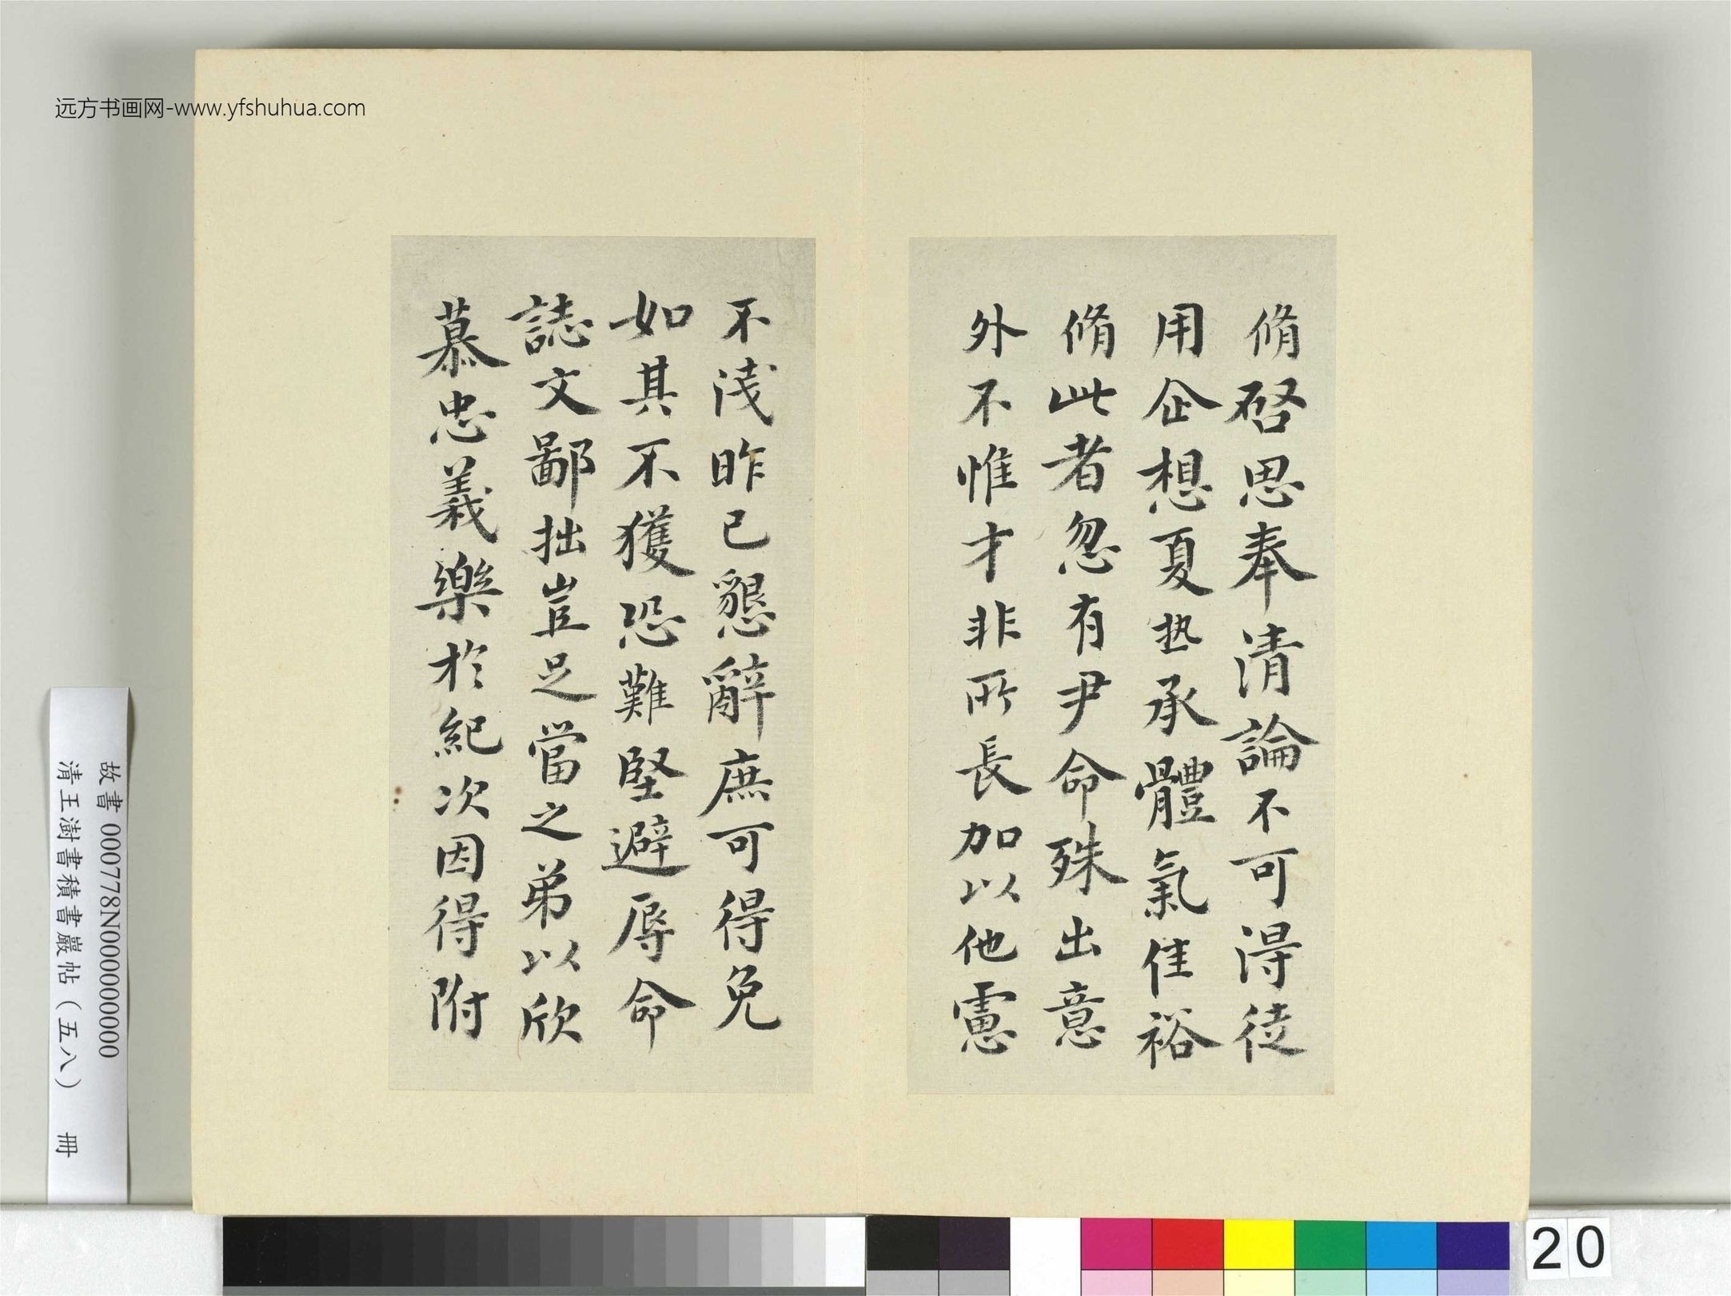 远方书画网-www.yfshuhua.com
脩啓思奉清論不可得徒
用企想夏热承體氣佳裕
脩此者忽有尹命殊出意
外不惟才非所長加以他慮
不淺昨已懇辭庶可得免
如其不獲恐難堅避辱命
誌文鄙拙豈足當之弟以欣
慕忠義樂於紀次因得附
故書000778N000000000
清王澍書積書巖帖（五八） 冊
20